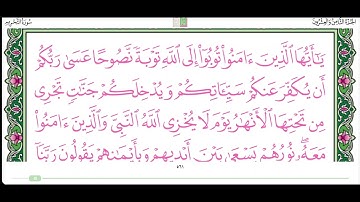 الجزء الثامن والعشرون سورة التحريم
يَـٰٓأَيُّهَا ٱلَّذِينَ ءَامَنُوا۟ تُوبُوٓا۟ إِلَى ٱللَّهِ تَوْبَةً نَّصُوحًا عَسَىٰ رَبُّكُمْ
أَن يُكَفِّرَ عَنكُمْ سَيِّـَٔاتِكُمْ وَيُدْخِلَكُمْ جَنَّـٰتٍ تَجْرِى
مِن تَحْتِهَا ٱلْأَنْهَـٰرُ يَوْمَ لَا يُخْزِى ٱللَّهُ ٱلنَّبِىَّ وَٱلَّذِينَ ءَامَنُوا۟
مَعَهُۥ ۖ نُورُهُمْ يَسْعَىٰ بَيْنَ أَيْدِيهِمْ وَبِأَيْمَـٰنِهِمْ يَقُولُونَ رَبَّنَآ
٥٦١